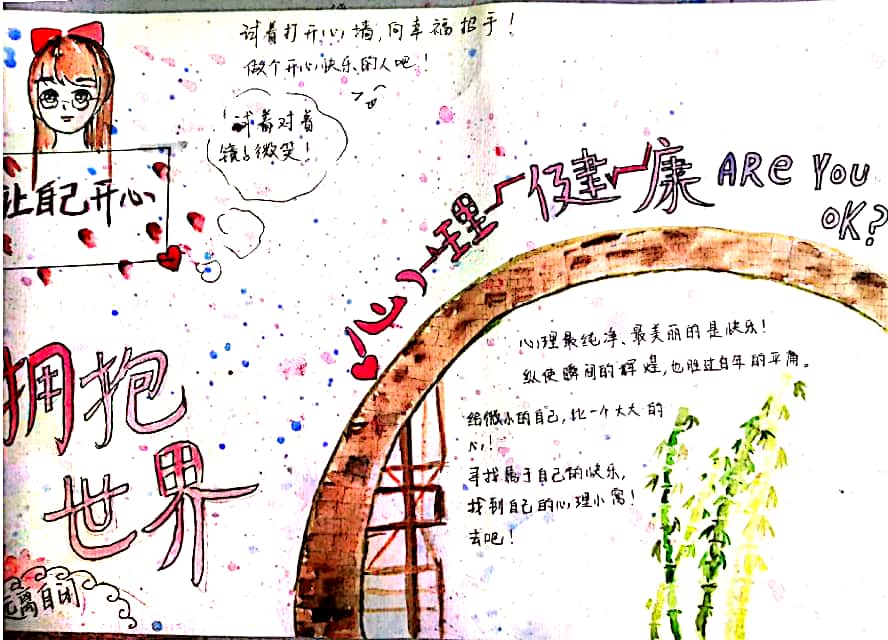 试着打开心墙,向幸福招手!
做个开心快乐的人吧!
试着对着
镜子微笑!
让自己开心
心理健康 ARe You
OK?
心理最纯净、最美丽的是快乐!
纵使瞬间的辉煌,也胜过百年的平庸。
给微小的自己,比一个大大的
心!
寻找属于自己的快乐,
找到自己的心理小窝!
去吧!
拥抱
世界
远离自闭